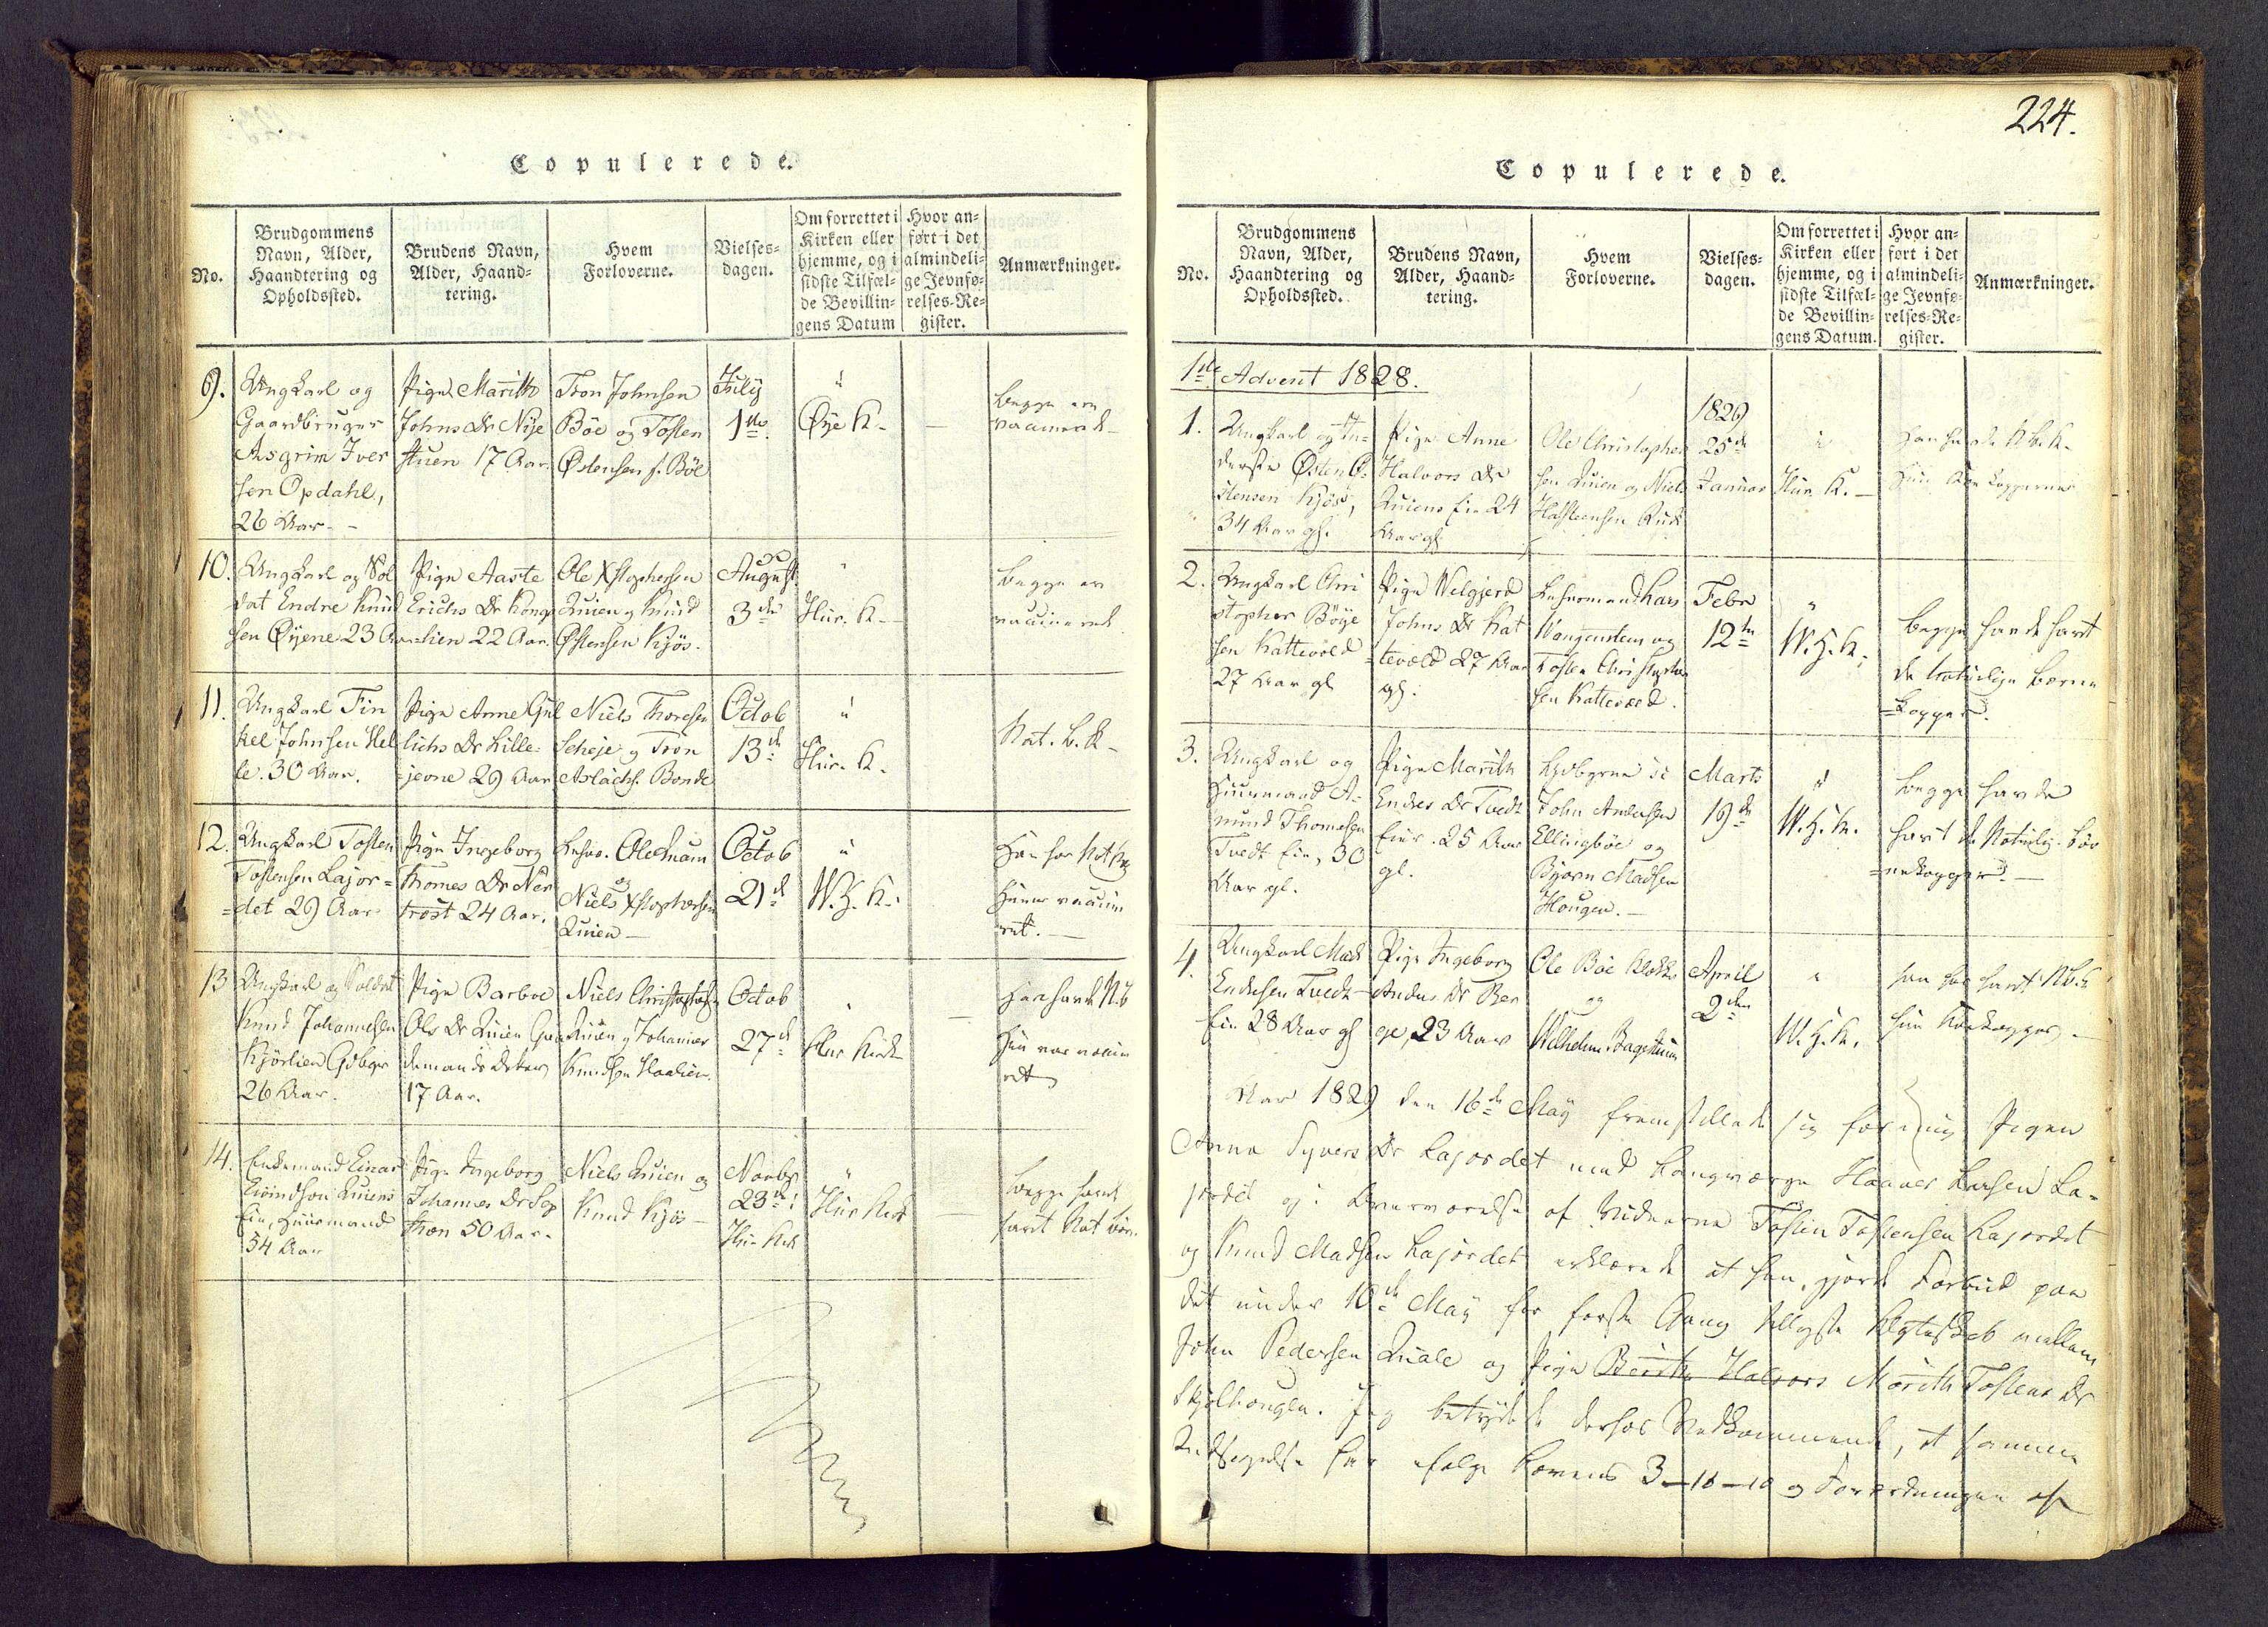 Copulerede.
No.
Brudgommens
Navn, Alder,
Haandtering og
Opholdssted.
Brudens Navn,
Alder, Haand-
tering.
Hvem
Forloverne.
Vielses-
dagen.
Om forrettet i
Kirken eller
hjemme, og i
sidste Tilfæl-
de Bevillin-
gens Datum
Hvor an-
ført i det
almindeli-
ge Jevnfø-
relses-Re-
gister.
Anmærkninger.
9.
Ungkarl og
Gaardbruger
Asgrim Iver
sen Opdahl,
26 Aar. -
Pige Marith
Johns Dr Nije
stuen 17 Aar.
Tron Johnsen
Böe og Tosten
Østensen s. Böe
July
1ste
i
Øye K.
Begge ere
vaccinerede
10.
Ungkarl og Sol
dat Endre Knud
sen Øyene 23 Aar
Pige Aaste
Erichs Dr Kongs
lien 22 Aar.
Ole Xstophersen
Quien og Knud
Østensen Kjös.
August
3die
Hur. K.
Begge er
vaccinerede
11.
Ungkarl Fin
kel Johnsen Hel
le. 30 Aar.
Pige Anne Gul
lichs Dr Lille-
jevne 29 Aar
Niels Thoresen
Scheje og Tron
Aslachs. Bonde
Octob
13de
i
Hur. K.
Nat. B. K.
12.
Ungkarl Tosten
Tostensen Lajor-
det 29 Aar
Pige Ingeborg
Thomes Dr Ner
trost 24 Aar.
Ole
og
Niels Xstophersen
Quien
Octob
21de
i
W. H. K.
Han har Nat
Hun vaccine
ret.
13
Ungkarl og Soldat
Knud Johannessen
Kjörlien Gdbgr
26 Aar.
Pige Barboe
Ols Dr Quien
17 Aar.
Niels Christophersen
Quien og Johannes
Knudsen Haalien.
Octob
27de
Hur Kirk
Han havde N. B
Hun var vaccine
ret
14.
Enkemand Einar
Eriindsen Quiens
Eie, Huusmand
54 Aar
Pige Ingeborg
Johannes Dr
50 Aar.
Niels Quien og
Knud Kjös
Novbr
23de
Hur Kirk
Hur Kirk
Begge havde
havt Nat. Bør.
224.
Copulerede.
No.
Brudgommens
Navn, Alder,
Haandtering og
Opholdssted.
Brudens Navn,
Alder, Haand-
tering.
Hvem
Forloverne.
Vielses-
dagen.
Om forrettet i
Kirken eller
hjemme, og i
sidste Tilfæl-
de Bevillin-
gens Datum.
Hvor an-
ført i det
almindeli-
ge Jevnfø-
relses-Re-
gister.
Anmærkninger.
1ste Advent 1828.
1.
Ungkarl og In-
derste Østen Ø-
stensen Kjös,
34 Aar gl.
Pige Anne
Halvors Dr
Quiens Eie 24
Aar gl
Ole Christopher
sen Quien og Niels
Halsteensen Rude
1829
25de
Januar
i
Hur. K.
Han havde N. B. K.
Hun Koekopperne
2.
Ungkarl Chri
stopher Böye
sen Kattevold
27 Aar gl
Pige Welgjerd
Johns Dr Kat
tevold 27 Aar
gl.
Lehnsmand Lars
Wangensteen og
Tosten Christopher
sen Kattevold.
Febr
12te
W. H. K.
Begge havde havt
de Naturlige Børne
-kopper.
3.
Ungkarl og
Huusmand A-
mund Thomesen
Tvedt Eie, 30
Aar gl.
Pige Marith
Endres Dr Tvedt
Eie. 25 Aar
gl.
John Andersen
Ellingböe og
Bjørn Madsen
Hougen.
Marts
19de
i
W. H. K.
Begge havde
havt de Naturlige Bør
-nekopper.
4.
Ungkarl Mads
Endresen Tvedt
Eie 28 Aar gl
Pige Ingeborg
Andres Dr Ber
ge, 23 Aar
Ole Böe Klokker
og
Wilhelm Bagstuen
April
2den
W. H. K.
han har havt N. B. K
hun Koekopper.
Aar 1829 den 16de May fremstillede sig for mig Pigen
Anne Syvers Dr Lajordet med Laugværge Haaver Larsen La-
jordet og i Overværelse af Vidnerne Tosten Tostensen Lajordet
og Knud Madsen Lajordet erklærede at hun gjorde Forbud paa
det under 10de May for første Gang tillyste Ægteskab mellem
John Pedersen Quale og Pige Berith Halvors Marith Tostens Dr
Skjelhougen. Jeg betydede derhos Vedkommende, at
følge Lovens 3-16-10 og Forordningen af